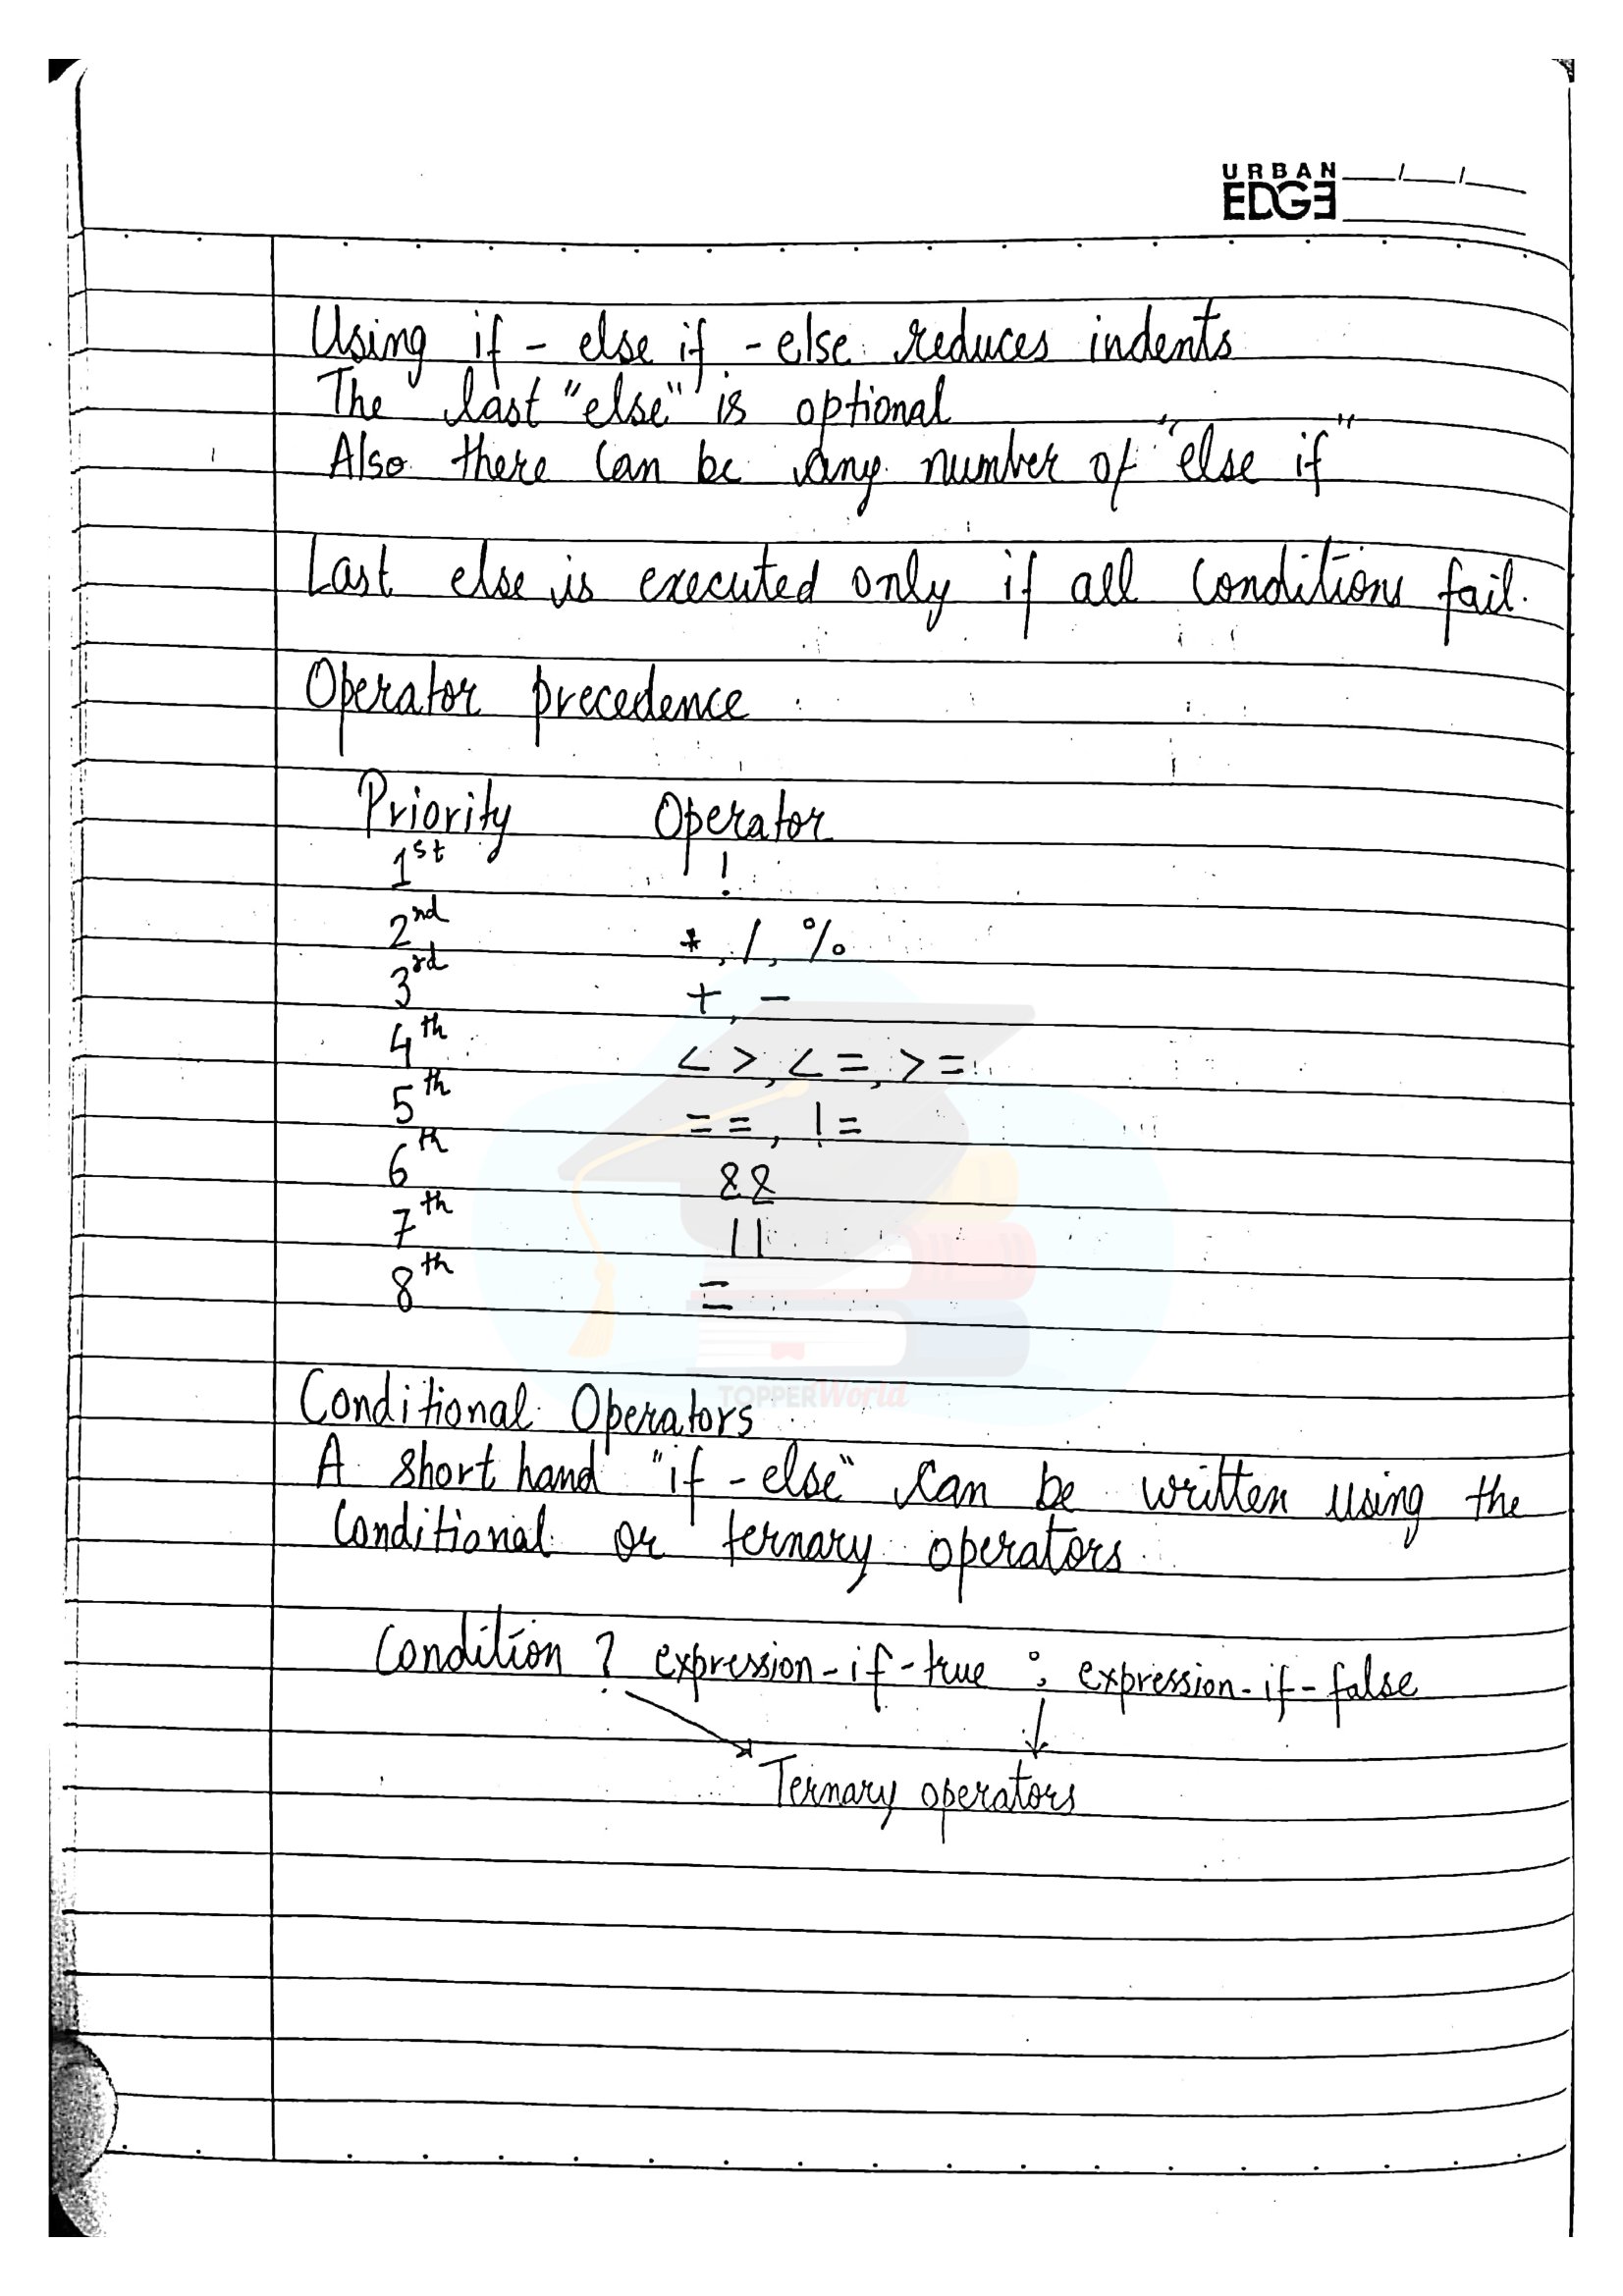 URBAN
EDGE
Using if - else if - else reduces indents
The last "else" is optional
Also there can be any number of "else if"
Last else is executed only if all conditions fail.
Operator precedence
Priority Operator
1st !
2nd *, /, %
3rd +, -
4th < >, < =, > =
5th = =, ! =
6th &&
7th ||
8th =
TOPPERWorld
Conditional Operators
A short hand "if - else" can be written using the
Conditional or ternary operators
Condition ? expression-if-true : expression-if-false
Ternary operators